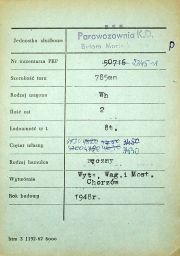 Jednostka służbowa Parowozownia K.D.
Nr inwentarza PKP 50716 2345-1 p
Szerokość toru 785mm
Rodzaj wagonu Wh
Ilość osi 2
Ładowność w t 8t.
Ciężar własny 3450
Rodzaj hamulca ręczny
Wytwórnia Wytw. Wag. i Most. Chorzów
Rok budowy 1948r.